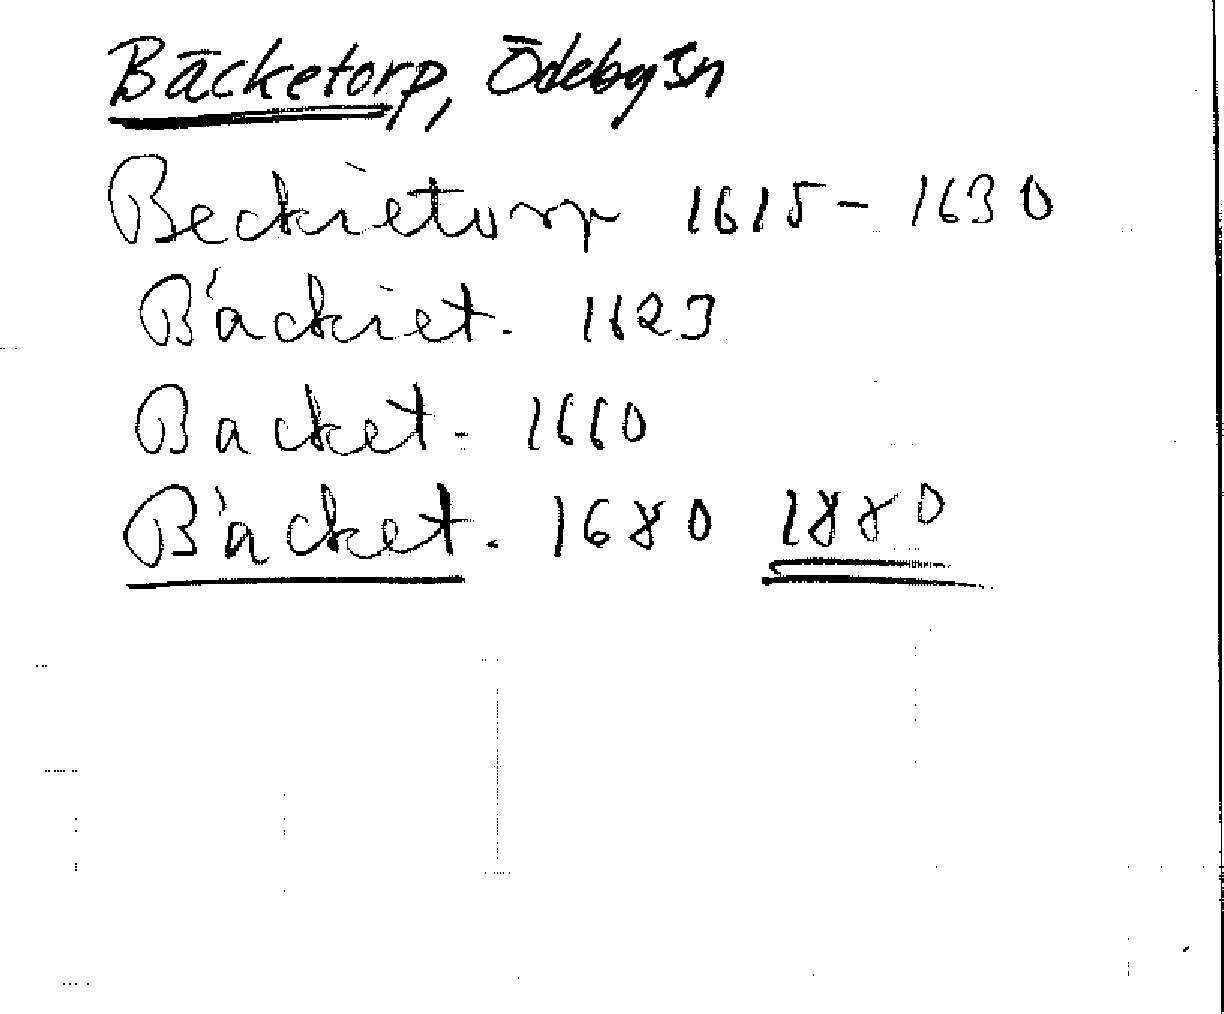 Bäcketorp, Ödeby sn
Beckietorp 1615 - 1630
Bäckiet. 1623
Backet - 1660
Bäcket. 1680 1880